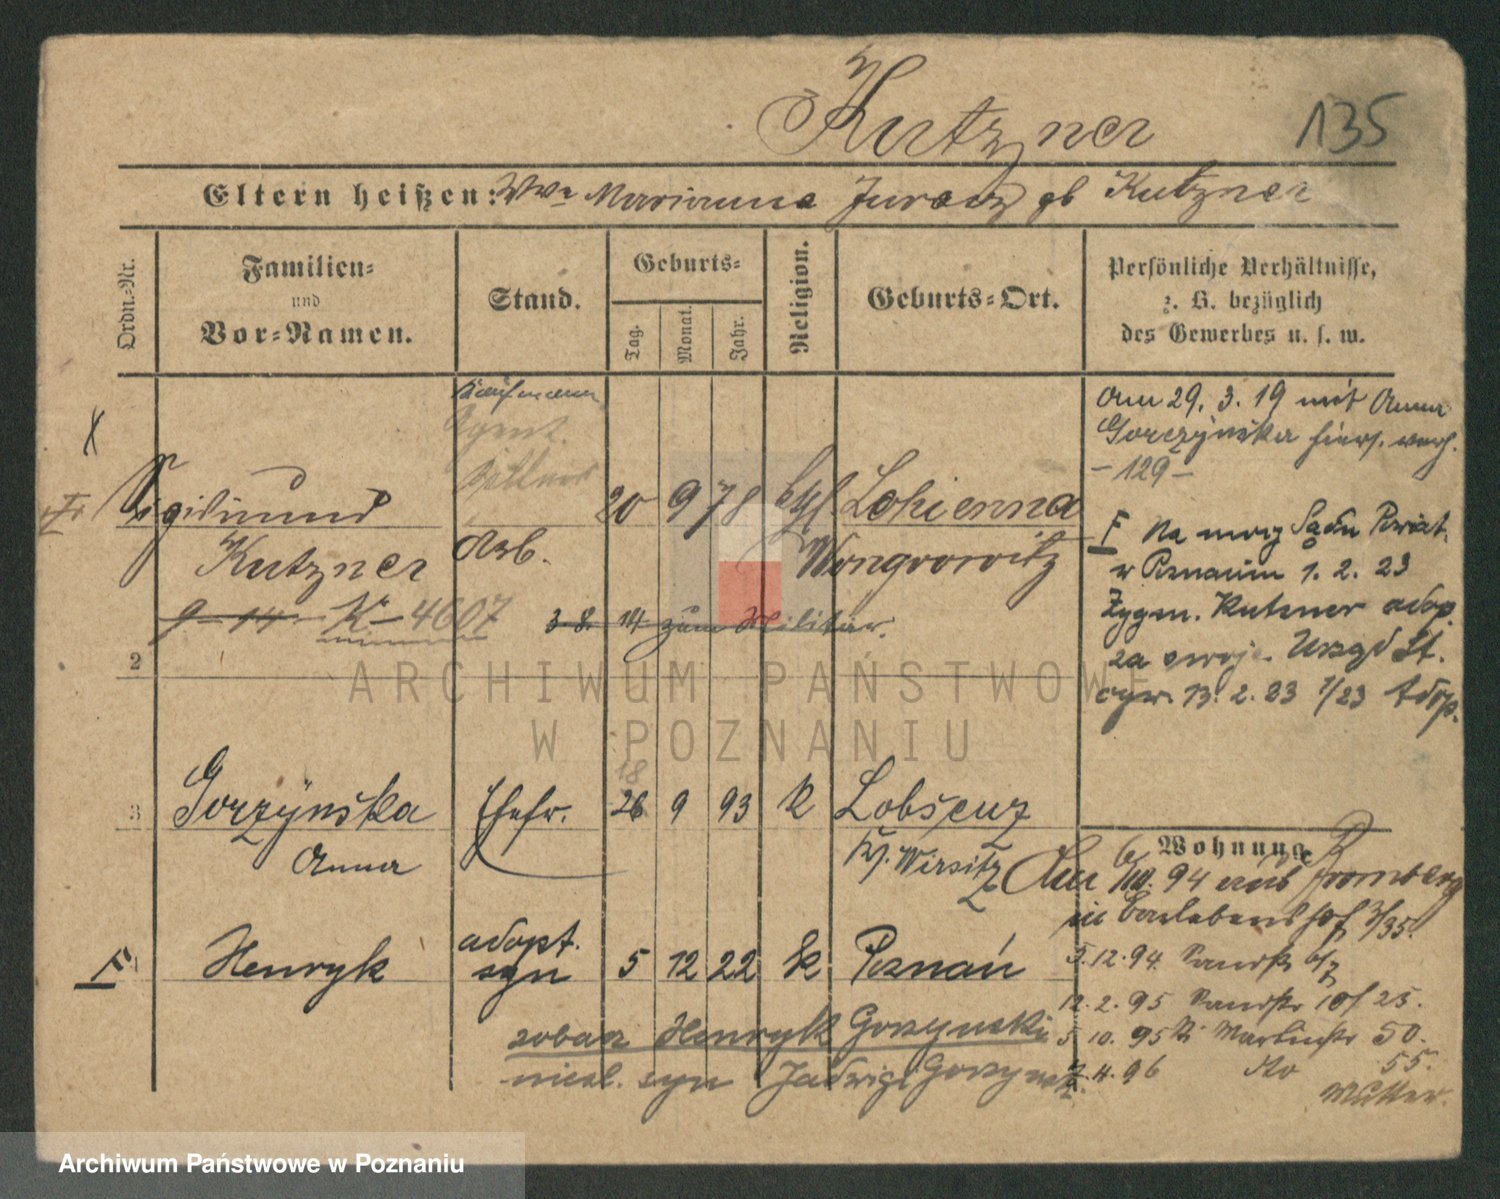 Kutzner
135
Eltern heißen: Wwe Marianna Juracz gb Kutzner
Ordn.-Nr.
Familien-
und
Vor-Namen.
Stand.
Geburts-
Tag.
Monat.
Jahr.
Religion.
Geburts-Ort.
Persönliche Verhältnisse,
z. B. bezüglich
des Gewerbes u. s. w.
Kaufmann
Agent.
Sigismund
Kutzner
Arb.
20 9 78 ktl Lokienna
Wongrowitz
9-14 K-4607
3 8. 14 zum Militär.
Am 29. 3. 19 mit Anna
Gorczyńska hiers. verh.
- 129 -
F Na mocy Sądu Powiat.
w Poznaniu 1. 2. 23
Zygm. Kutzner adop.
za swoje. Urząd St.
cyw. 13. 2. 23 1/23 Adop.
2
3
Gorzýnska
Anna
Ehefr.
18
26 9 93 k Lobsenz
Kr. Wirsitz
Wohnung
Am 6/10. 94 aus Bromberg
in 3/35.
5.12.94.
12.2.95 10/ 25.
5 10. 95 50.
4. 96 do 55.
Mutter.
F
Henryk
adopt.
syn
5 12 22 k Poznań
zobacz Henryk Gorzynski
nieśl. syn Jadwigi Gorzynsk.
ARCHIWUM PAŃSTWOWE
W POZNANIU
Archiwum Państwowe w Poznaniu